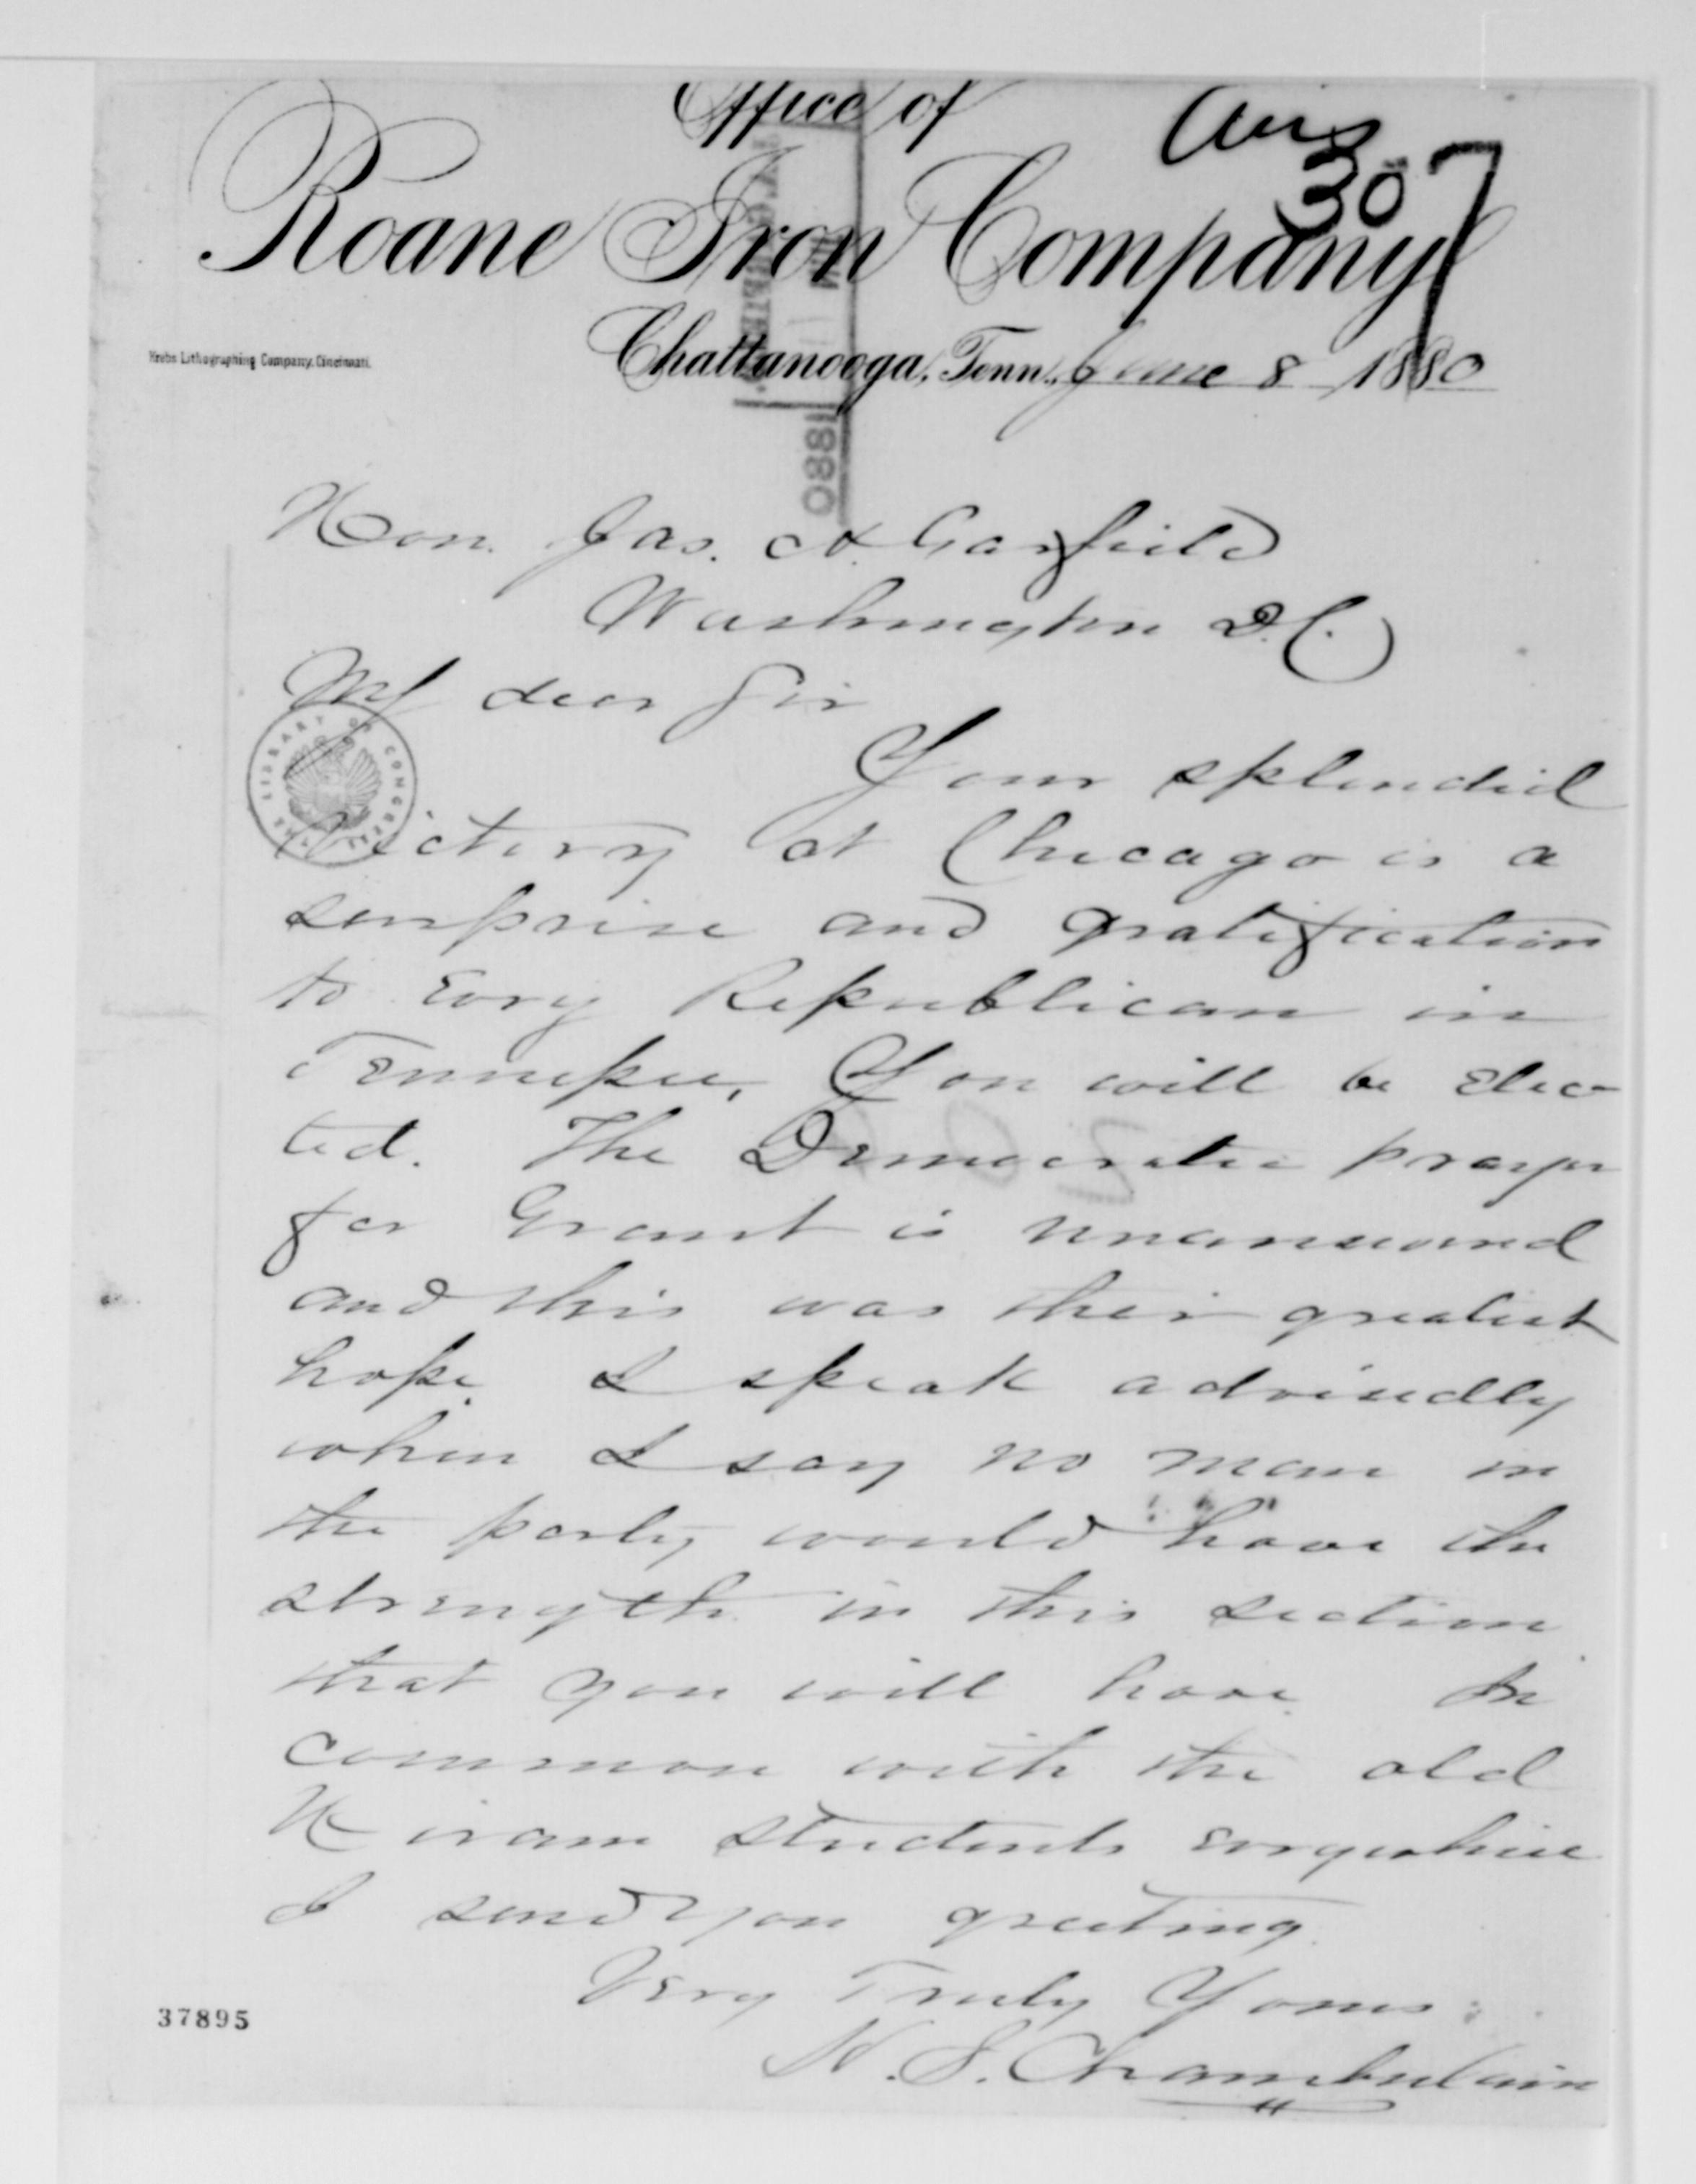 Office of
Ans
307
Roane Iron Company
Krebs Lithographing Company, Cincinnati.
Chattanooga, Tenn., June 8 1880
1880
Hon. Jas. A. Garfield
Washington D.C.
My dear Sir
THE LIBRARY OF CONGRESS
Your splendid
victory at Chicago is a
surprise and gratification
to every Republican in
Tennessee. You will be elec-
ted. The Democratic prayer
for Grant is unanswered
and this was their greatest
hope. I speak advisedly
when I say no man in
the party would have the
strength in this section
that you will have. In
common with the old
Hiram students everywhere
I send you greeting.
Very Truly Yours
H. S. Chamberlain
37895